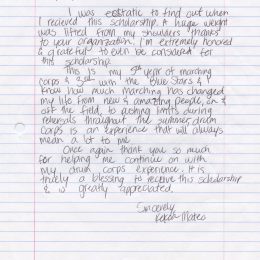 I was ecstatic to find out when
I recieved this scholarship. A huge weight
was lifted from my shoulders thanks
to your organization. I'm extremely honored
& grateful to even be considered for
this scholarship.
This is my 5th year of marching
corps & 3rd with the Blue Stars & I
know how much marching has changed
my life from new & amazing people, on &
off the field, to pushing limits during
rehersals throughout the summer, drum
corps is an experience that will always
mean a lot to me.
Once again thank you so much
for helping me continue on with
my drum corps experience. It is
truely a blessing to receive this scholarship
& is greatly appreciated.
Sincerely,
Mateo